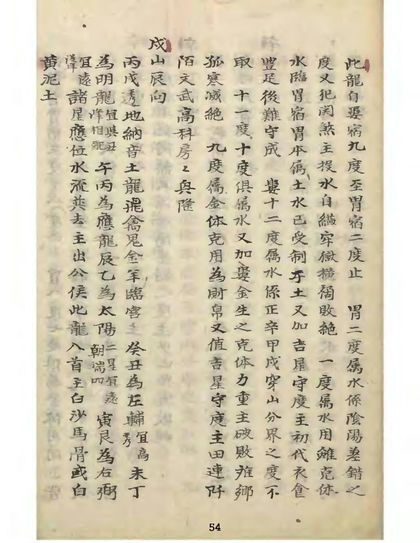 此龍自婁宿九度至胃宿二度止　胃二度屬水係陰陽差錯之
度又犯関煞主投水自縊窂獄横禍敗絶　一度屬水用雖克体
水臨胃宿胃本屬土水已受制于土又加吉星守度主初代衣食
豐足後難守成　婁十二度屬水係正辛甲戌穿山分界之度不
取　十一度十度俱屬水又加婁金生之克体力重主破敗離鄉
孤寒滅絶　九度屬金体克用為財帛又值吉星守度主田連阡
陌文武高科房房興隆
戌山辰向
丙戌透地納音土龍飛禽鬼金羊臨宮　癸丑為左輔宜高秀未丁
為明龍宜與丑午丙為應龍辰乙為太陽二星宜遠朝寅艮為右弼
宜遠諸星應位水流巽去主出公侯此龍入首主白沙馬骨或白
黄泥土
54